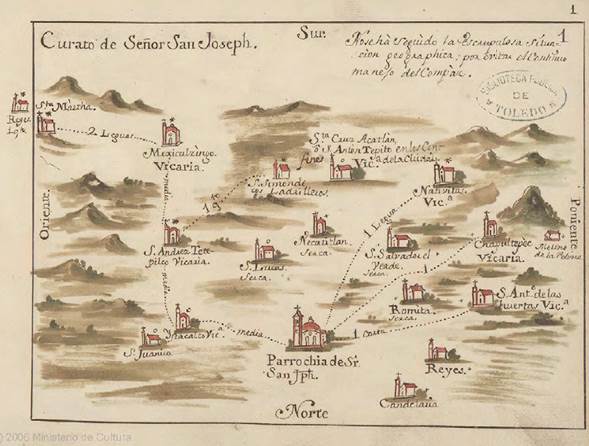 1
Curato de Señor San Joseph.
Sur.
1
No se hà seguido la escrupulosa situa
cion geographica; por evitar el continuo
manejo del Compàz.
BIBLIOTECA PUBLICA
DE
TOLEDO
Sta. Martha.
Reyes
2 Leguas
Mexicalzingo.
Vicaria.
Sta. Cruz Acatlan,
S. Anton Tepito en los Con
fines
Vica. de la Ciudad
S. Simon de
los Ladrilleros
Nativitas
Vica.
Oriente.
media
1 Legua
Poniente.
S. Andrez Tete
pilco Vicaria.
Necatitlan
seca
S. Lucas.
seca.
S. Salvador el
Verde.
seca
Chapultepec
Vicaria.
Molino
de la Polvora
1
media
Romita
seca
S. Anto. de las
Huertas Vica.
S. Juanico
Ystacalco Vica.
media
1 corta
Parrochia de Sr.
San Jph.
Reyes
Candelaria
Norte
© 2006 Ministerio de Cultura